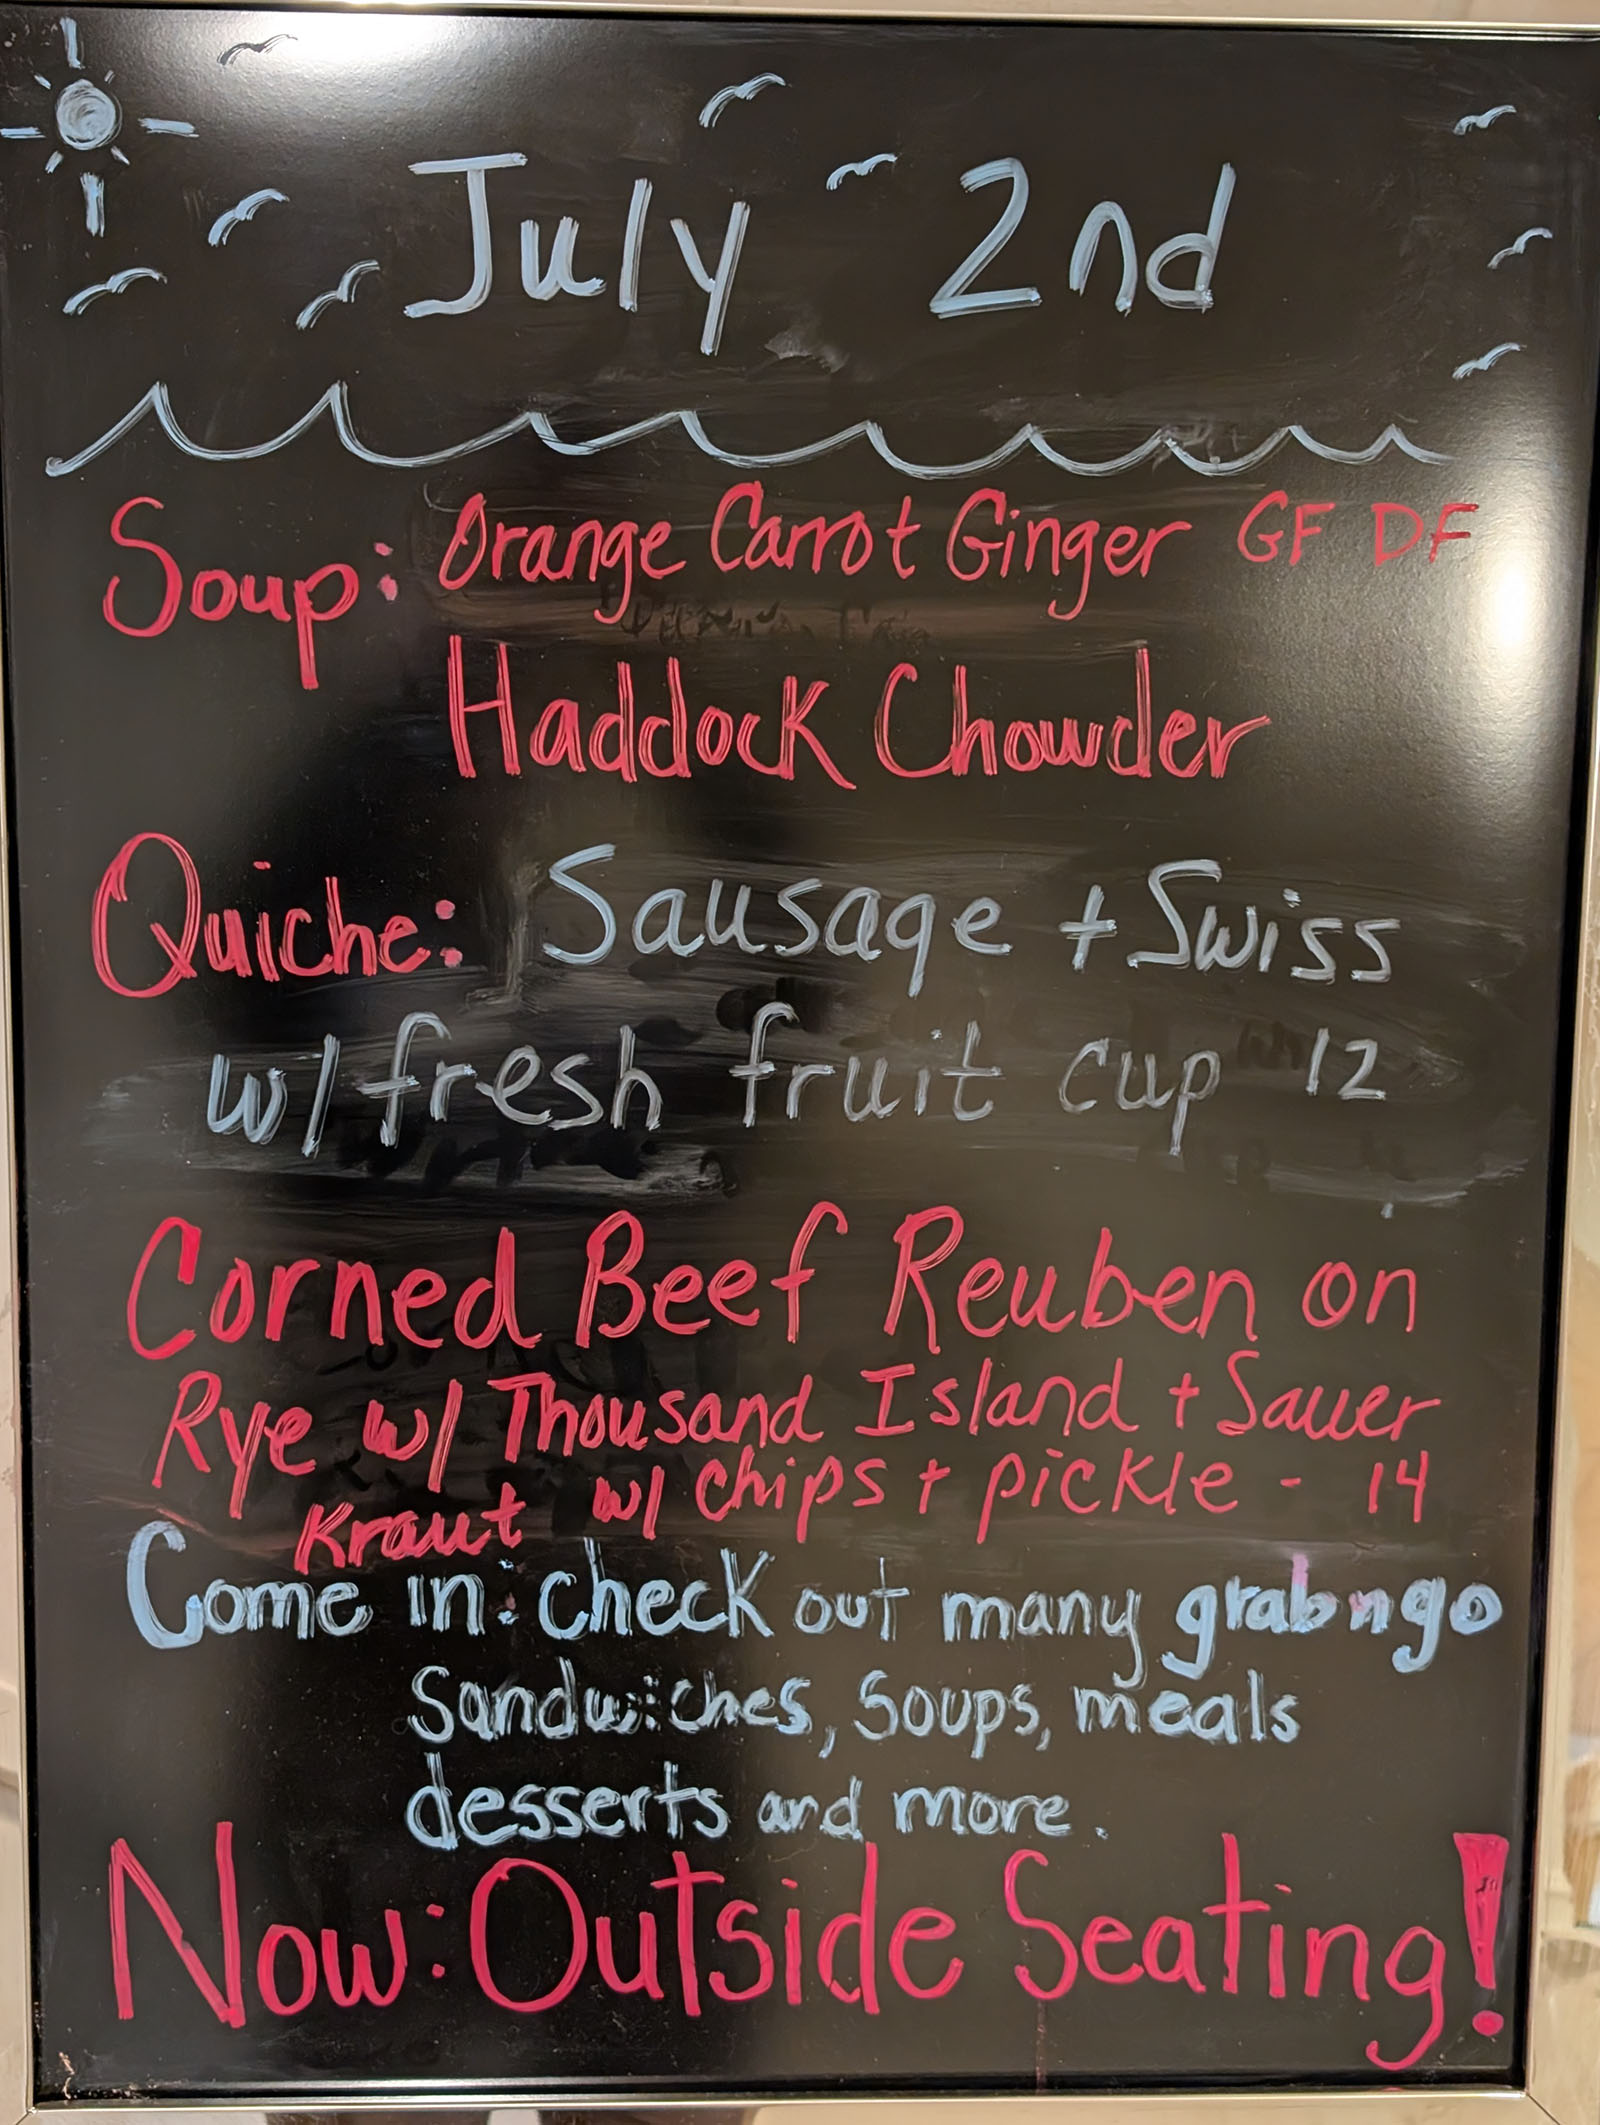 July 2nd
Soup: Orange Carrot Ginger GF DF
Haddock Chowder
Quiche: Sausage + Swiss
w/ fresh fruit cup 12
Corned Beef Reuben on
Rye w/ Thousand Island + Sauer
Kraut w/ chips + pickle - 14
Come in: check out many grabngo
Sandwiches, Soups, meals
desserts and more.
Now: Outside Seating!